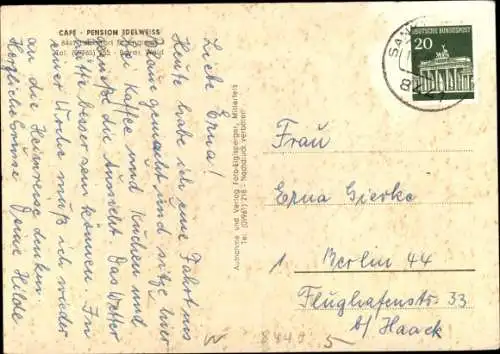 CAFÉ - PENSION IDELWEISS
Liebe Erna!
Heute habe ich eine Fahrt ins
Blaue gemacht und sitze hier
bei Kaffee und Kuchen und
genieße die Aussicht. Das Wetter
hätte besser sein können. In
einer Woche muß ich wieder
an die Heimreise denken.
Herzliche Grüße Deine Hilde
Aufnahme und Verlag Foto Mitterfels
Tel. (09961) 218 - Nachdruck verboten
20
DEUTSCHE BUNDESPOST
SANK
Frau
Erna Gierke
1 Berlin 44
Flughafenstr. 33
b/ Haack
8449
5